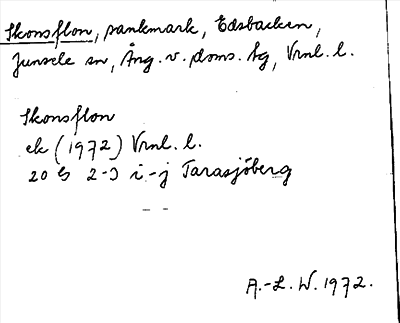 Skonsflon, sankmark, Edsbacken,
Junsele sn, Ång. v. doms. bg, Vrnl. l.
Skonsflon
ek (1972) Vrnl. l.
20 G 2-3 i-j Tarasjöberg
A.-L. W. 1972.